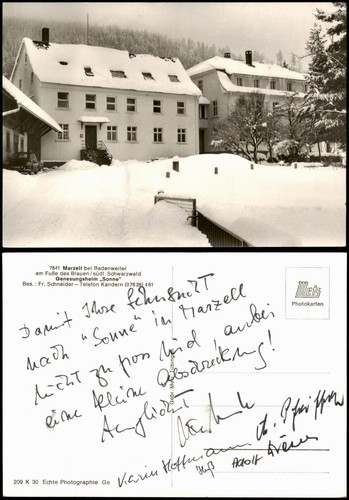 7841 Marzell bei Badenweiler
am Fuße des Blauen / südl. Schwarzwald
Genesungsheim „Sonne"
Bes.: Fr. Schneider – Telefon Kandern (07626) 461
Metz
Photokarten
Damit Ihre Sehnsucht
nach "Sonne" in Marzell
nicht zu groß wird anbei
eine kleine Abdeckung!
Herzlichst
Karin Hoffmann
Adolf
209 K 30 Echte Photographie Ge